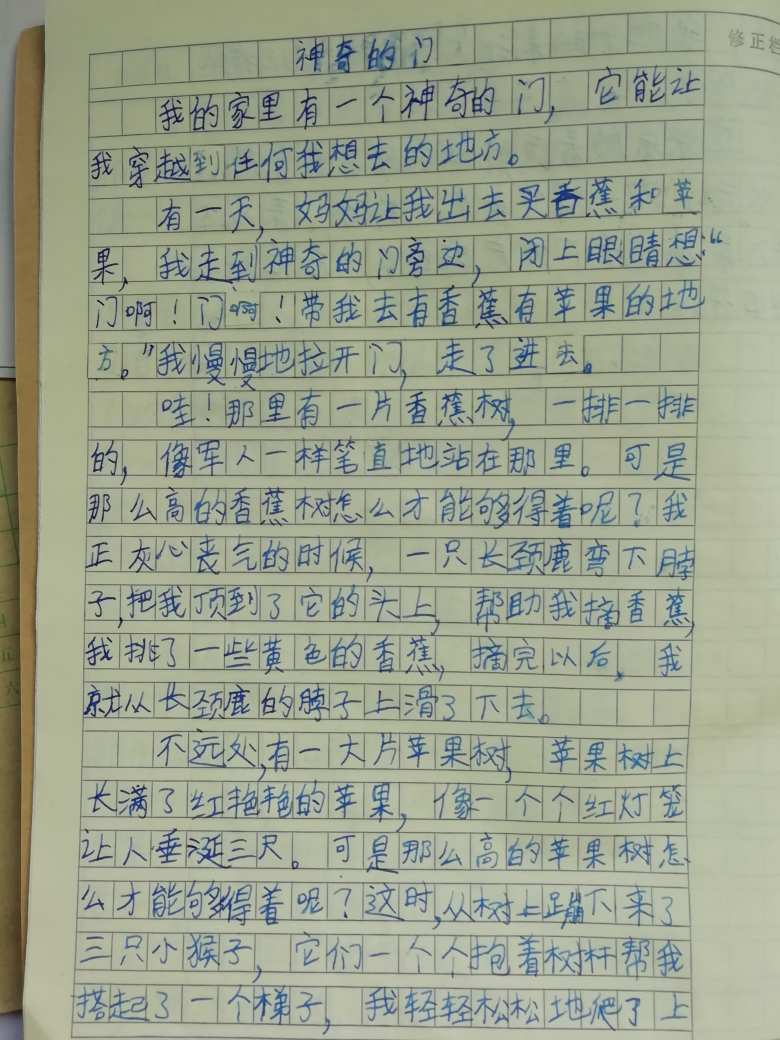 修正栏
神奇的门
我的家里有一个神奇的门，它能让
我穿越到任何我想去的地方。
有一天，妈妈让我出去买香蕉和苹
果，我走到神奇的门旁边，闭上眼睛想“
门啊！门啊！带我去有香蕉有苹果的地
方。”我慢慢地拉开门，走了进去。
哇！那里有一片香蕉树，一排一排
的，像军人一样笔直地站在那里。可是
那么高的香蕉树怎么才能够得着呢？我
正灰心丧气的时候，一只长颈鹿弯下脖
子，把我顶到了它的头上，帮助我摘香蕉，
我排了一些黄色的香蕉，摘完以后，我
就从长颈鹿的脖子上滑了下去。
不远处，有一大片苹果树，苹果树上
长满了红艳艳的苹果，像一个个红灯笼
让人垂涎三尺。可是那么高的苹果树怎
么才能够得着呢？这时，从树上蹦下来了
三只小猴子，它们一个个抱着树杆帮我
搭起了一个梯子，我轻轻松松地爬了上